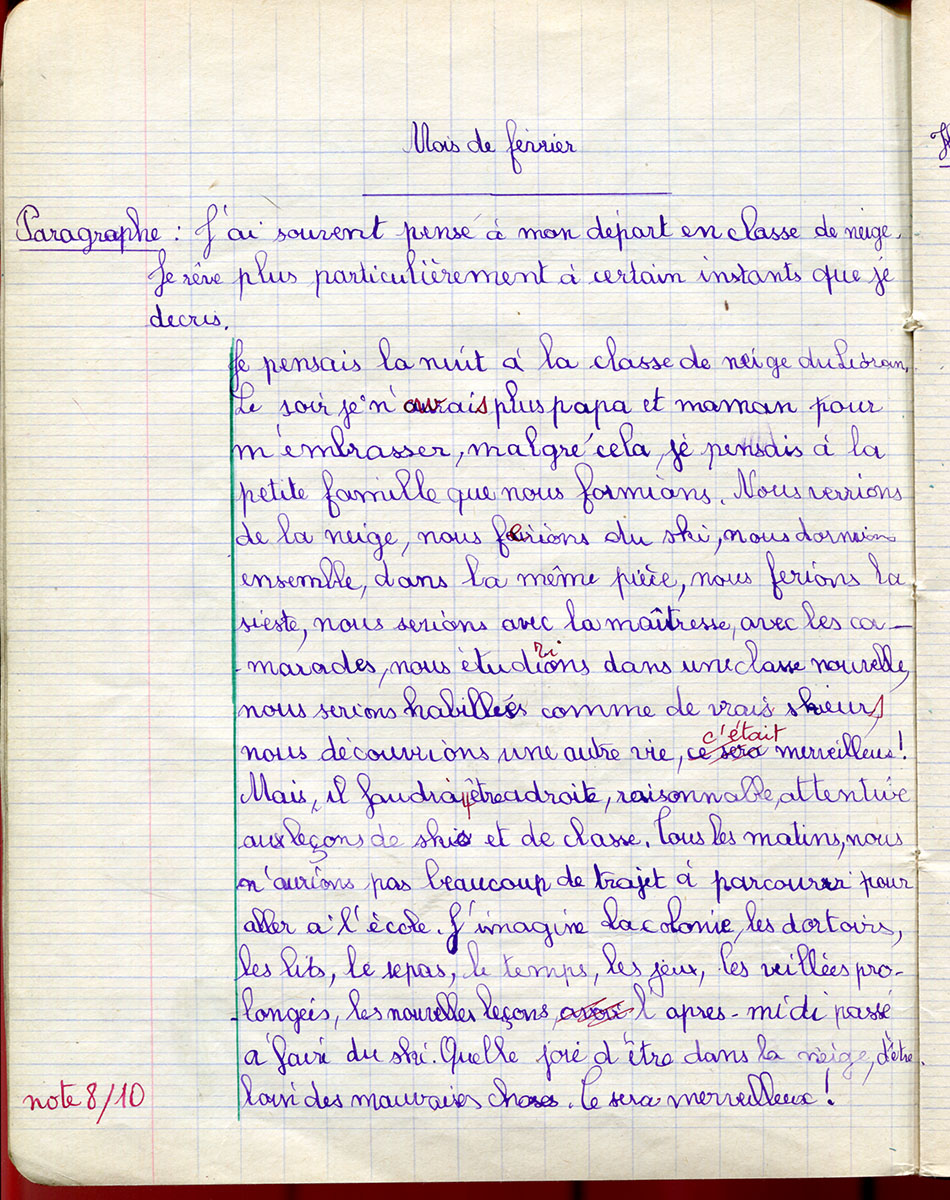 Mois de février
Paragraphe : J'ai souvent pensé à mon départ en classe de neige.
Je rêve plus particulièrement à certain instants que je
decris.
Je pensais la nuit à la classe de neige du Lioran.
Le soir je n'aurais plus papa et maman pour
m'embrasser, malgré cela, je pensais à la
petite famille que nous formions. Nous verrions
de la neige, nous ferions du ski, nous dormions
ensemble, dans la même pièce, nous ferions la
sieste, nous serions avec la maîtresse, avec les ca-
ri
-marades, nous étudiions dans une classe nouvelle,
nous serions habillés comme de vrais skieurs
c'était
nous découvrions une autre vie, ce sera merveilleux!
Mais, il faudrait être adroite, raisonnable, attentive
aux leçons de ski et de classe. Tous les matins, nous
n'aurions pas beaucoup de trajet à parcourir pour
aller a l'école. J'imagine la colonie, les dortoirs,
les lits, le repas, le temps, les jeux, les veillées pro-
-longées, les nouvelles leçons, l'apres-midi passé
à faire du ski. Quelle joie d'être dans la neige, d'être
loin des mauvaises choses. Ce sera merveilleux!
note 8/10